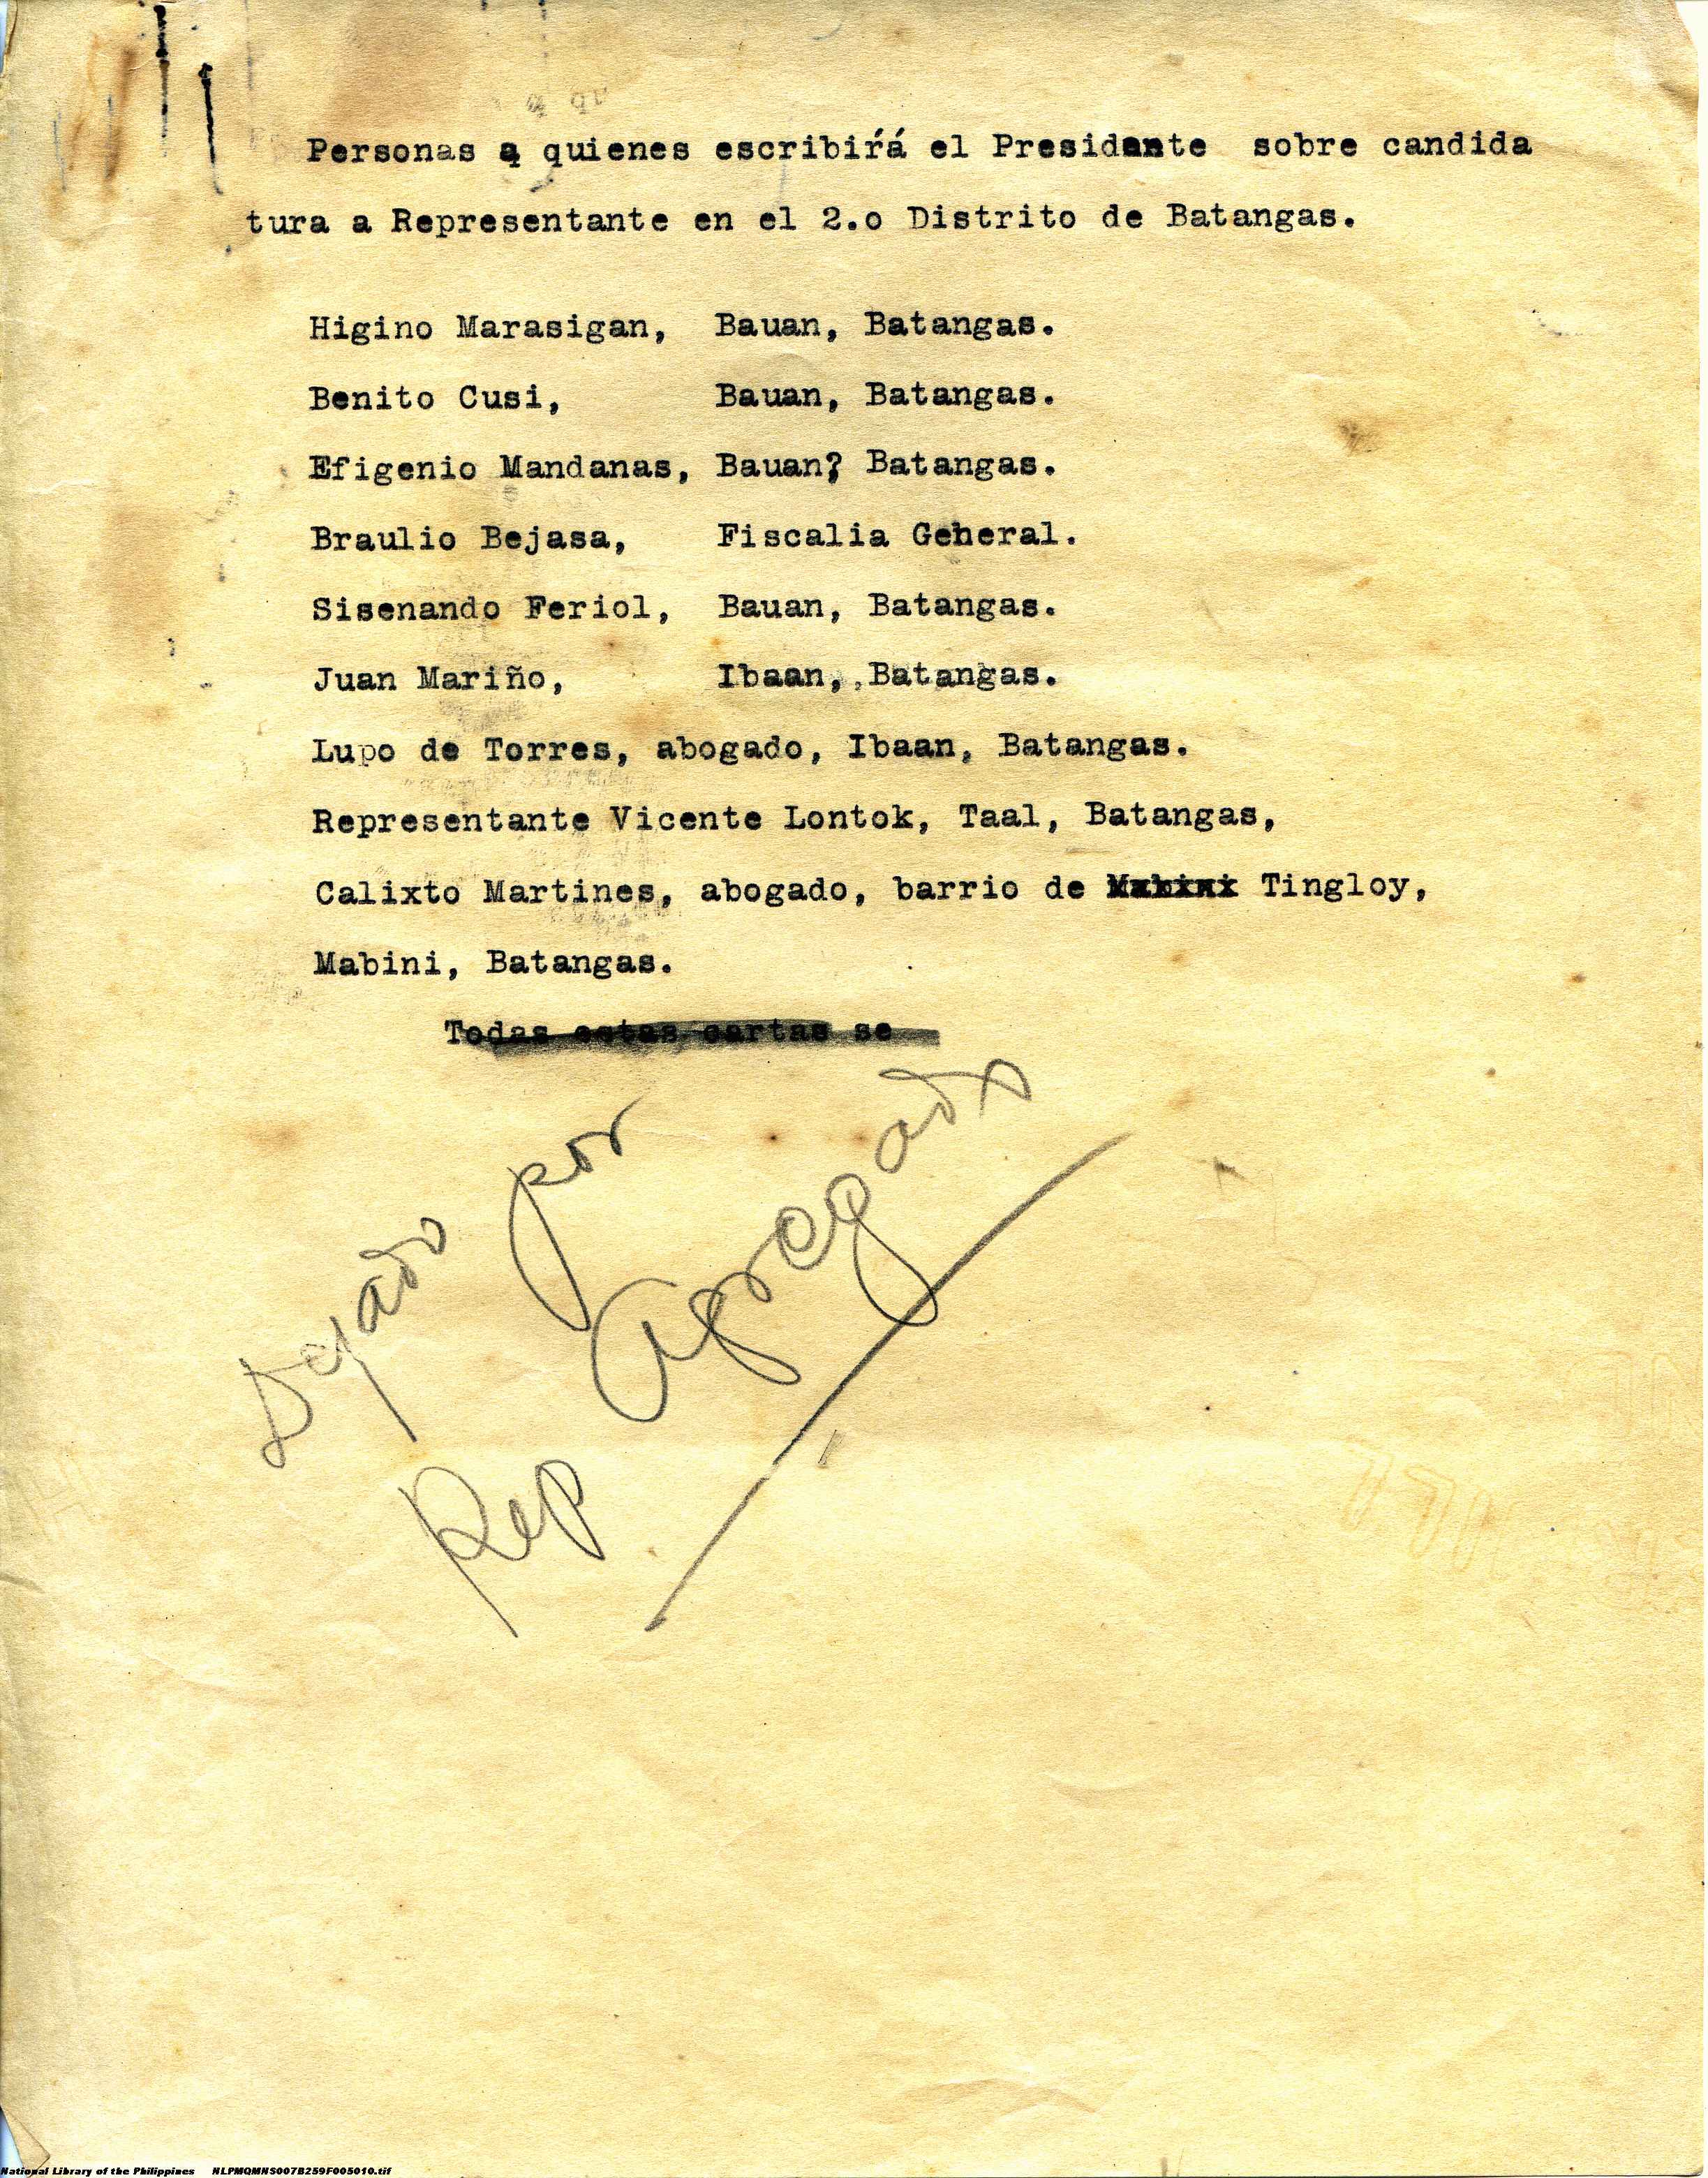 Personas a quienes escribirá el Presidente sobre candida
tura a Representante en el 2.o Distrito de Batangas.
Higino Marasigan, Bauan, Batangas.
Benito Cusi, Bauan, Batangas.
Efigenio Mandanas, Bauan? Batangas.
Braulio Bejasa, Fiscalia General.
Sisenando Feriol, Bauan, Batangas.
Juan Mariño, Ibaan, Batangas.
Lupo de Torres, abogado, Ibaan, Batangas.
Representante Vicente Lontok, Taal, Batangas,
Calixto Martines, abogado, barrio de Mabini Tingloy,
Mabini, Batangas.
Todas estas cartas se
Dejado por
Rep Apregado
National Library of the Philippines NLPMQMNS007B259F005010.tif